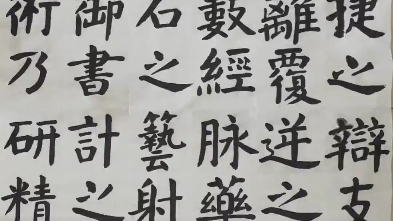 捷之辯支
離覆逆之
數經脉藥
石之藝射
御書計之
術乃研精